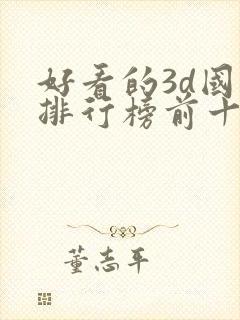 好看的3d國
排行榜前十
董志平